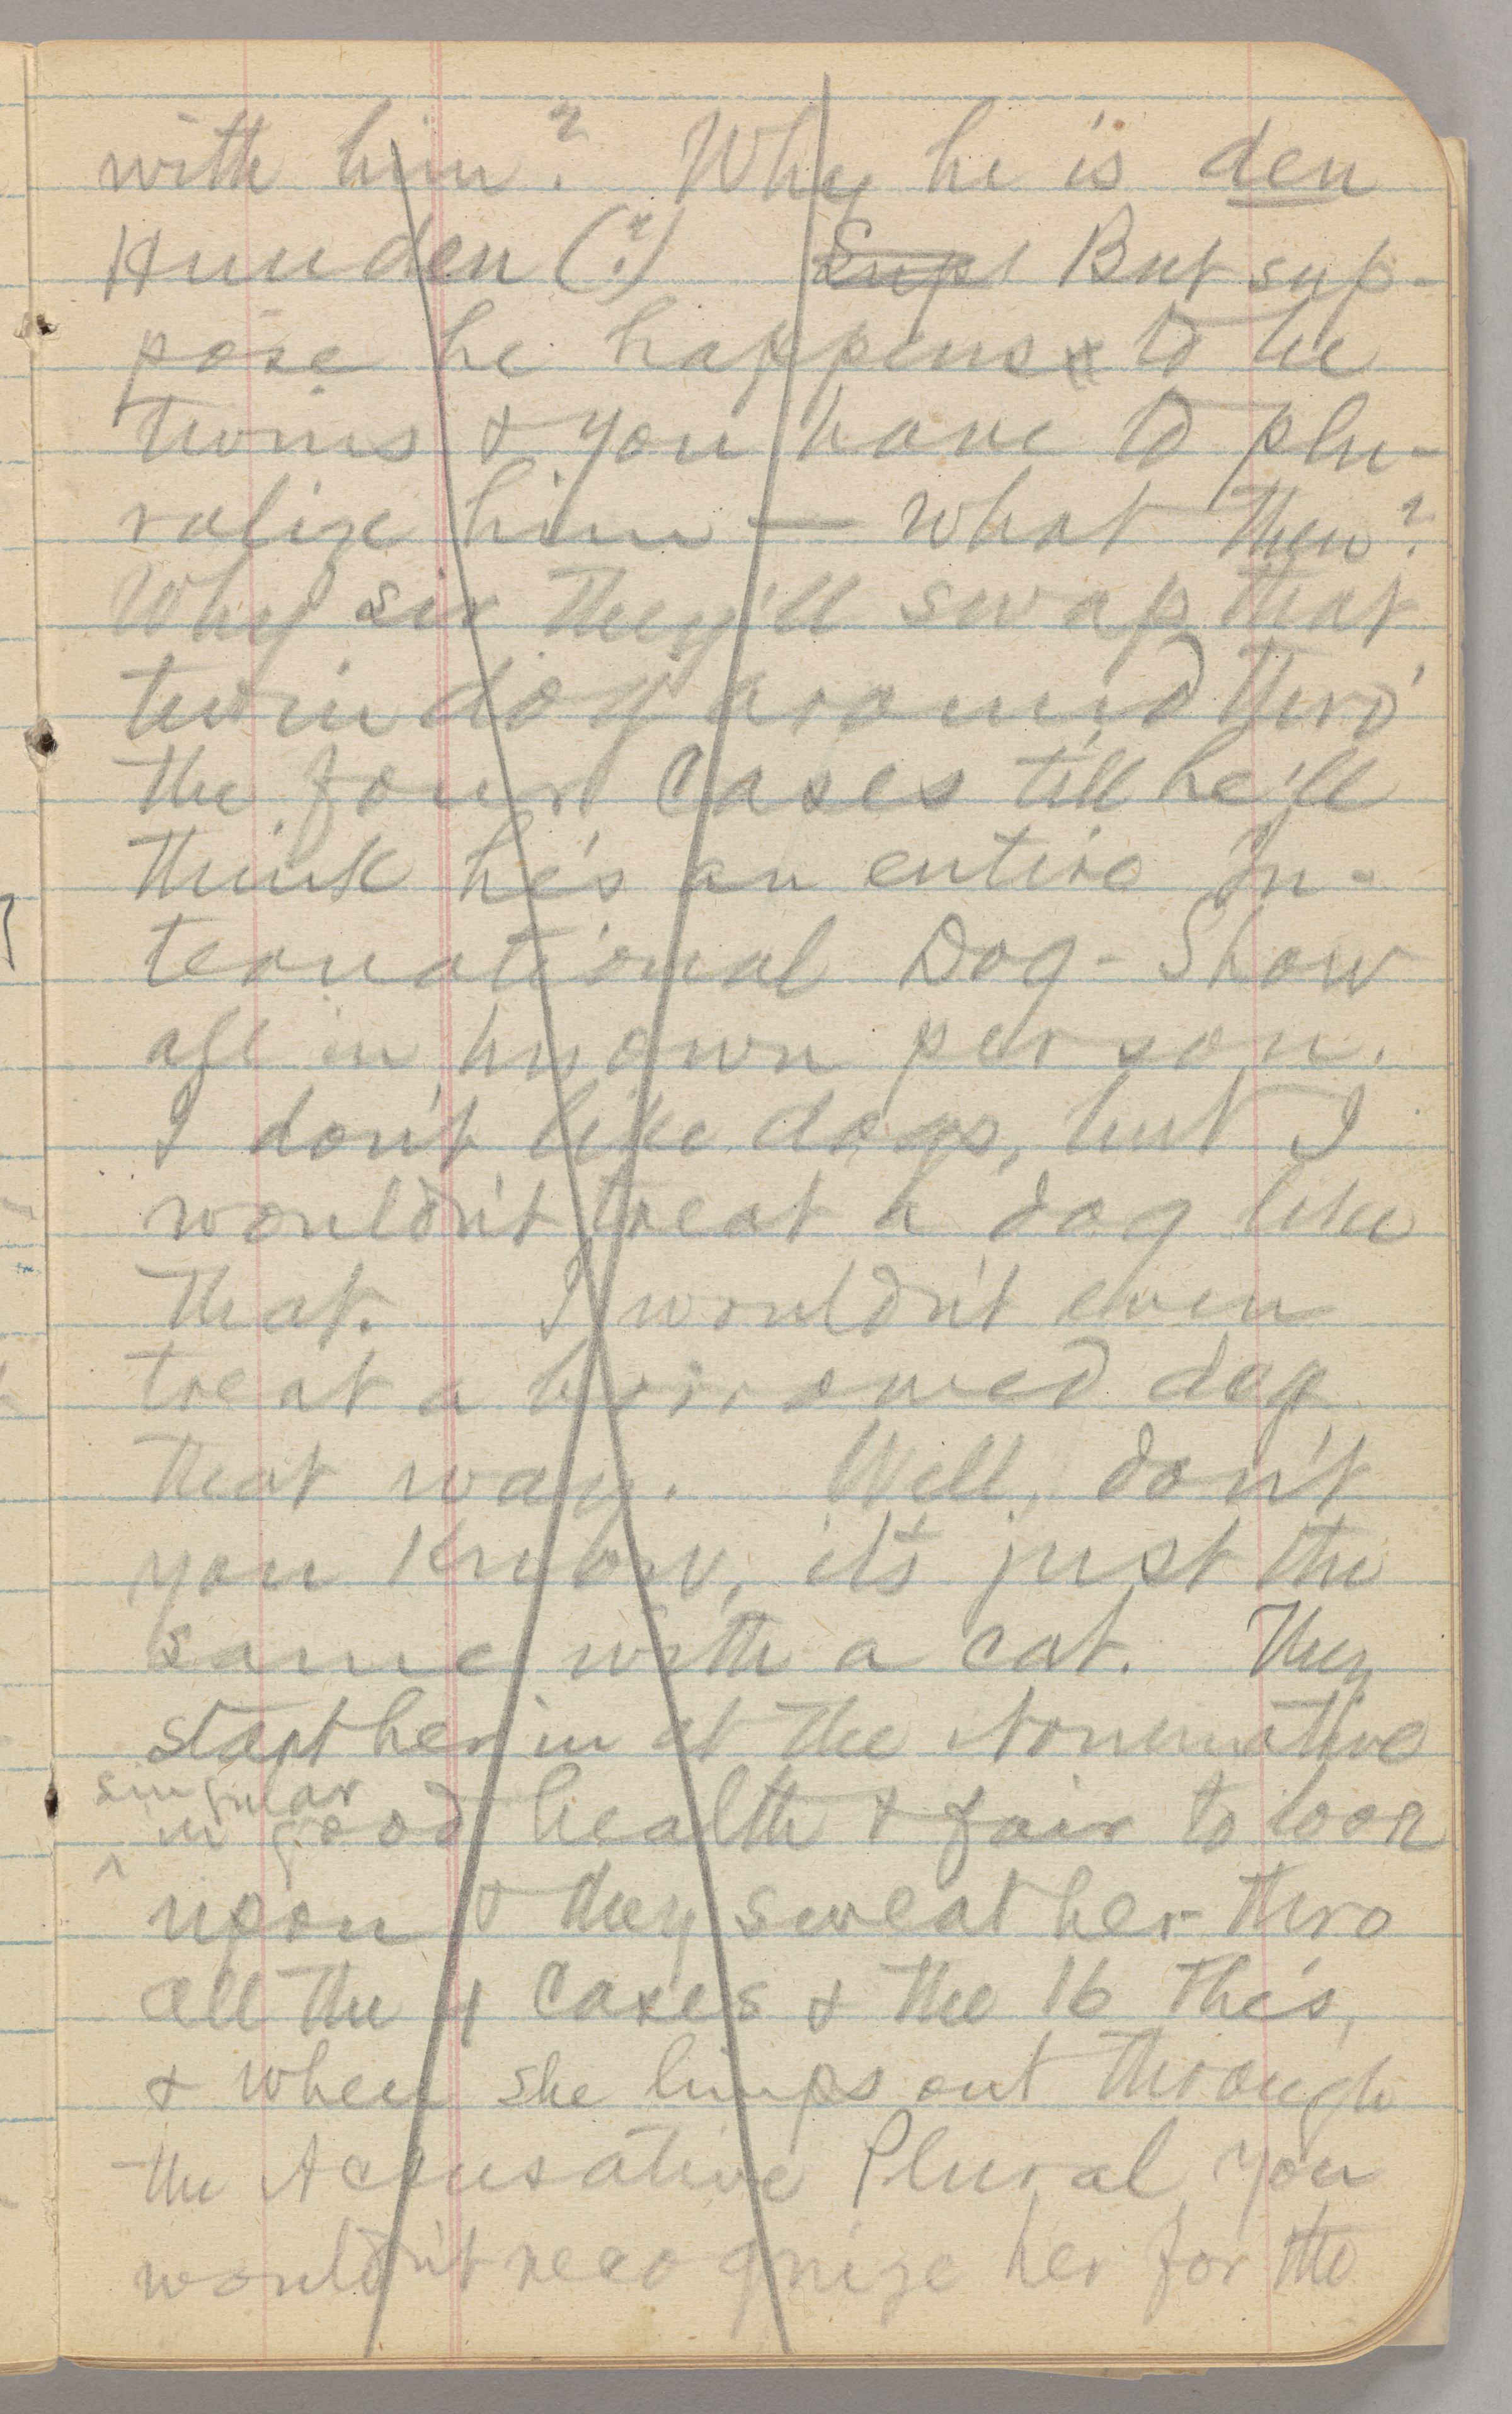 with him? Why he is den
Hunden (?) Sup But sup-
pose he happens to be
twins & you have to plu-
ralize him — what then?
Why sir they'll swap that
twin dog around thro'
the four Cases till he'll
think he's an entire In-
ternational Dog-Show
all in his own person.
I don't like dogs, but I
wouldn't treat a dog like
that. I wouldn't even
treat a borrowed dog
that way. Well, don't
you know, it's just the
same with a cat. They
start her in at the Nominative
singular
in good health & fair to look
upon & they sweat her thro
all the 4 Cases & the 16 the's,
& when she limps out through
the Accusative Plural you
wouldn't recognize her for the